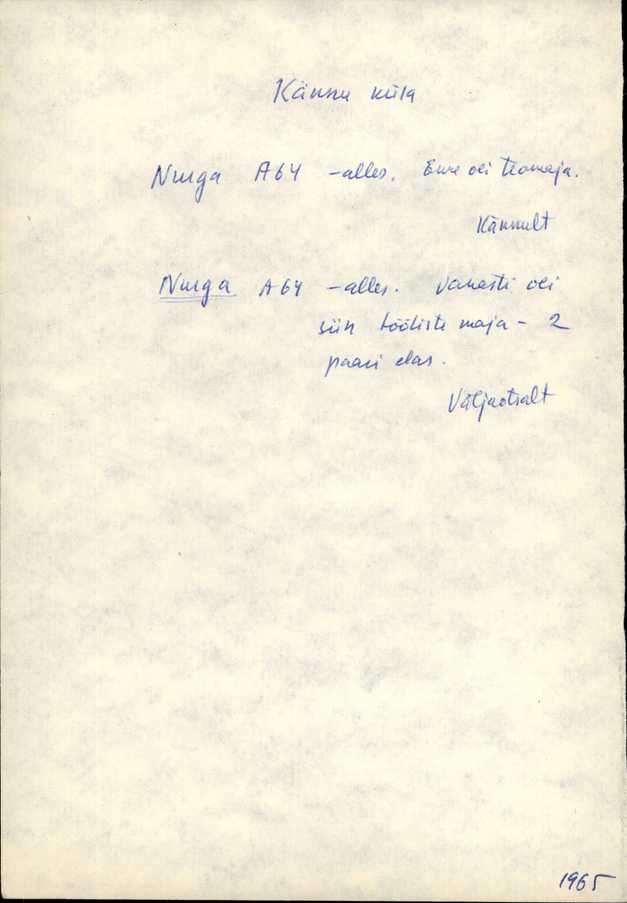 Kännu küla
Nurga A64 – alles. Enne oli teomaja.
Kännult
Nurga A64 – alles. Vanasti oli
siin tööliste maja – 2
paari elas.
Väljaotsalt
1965